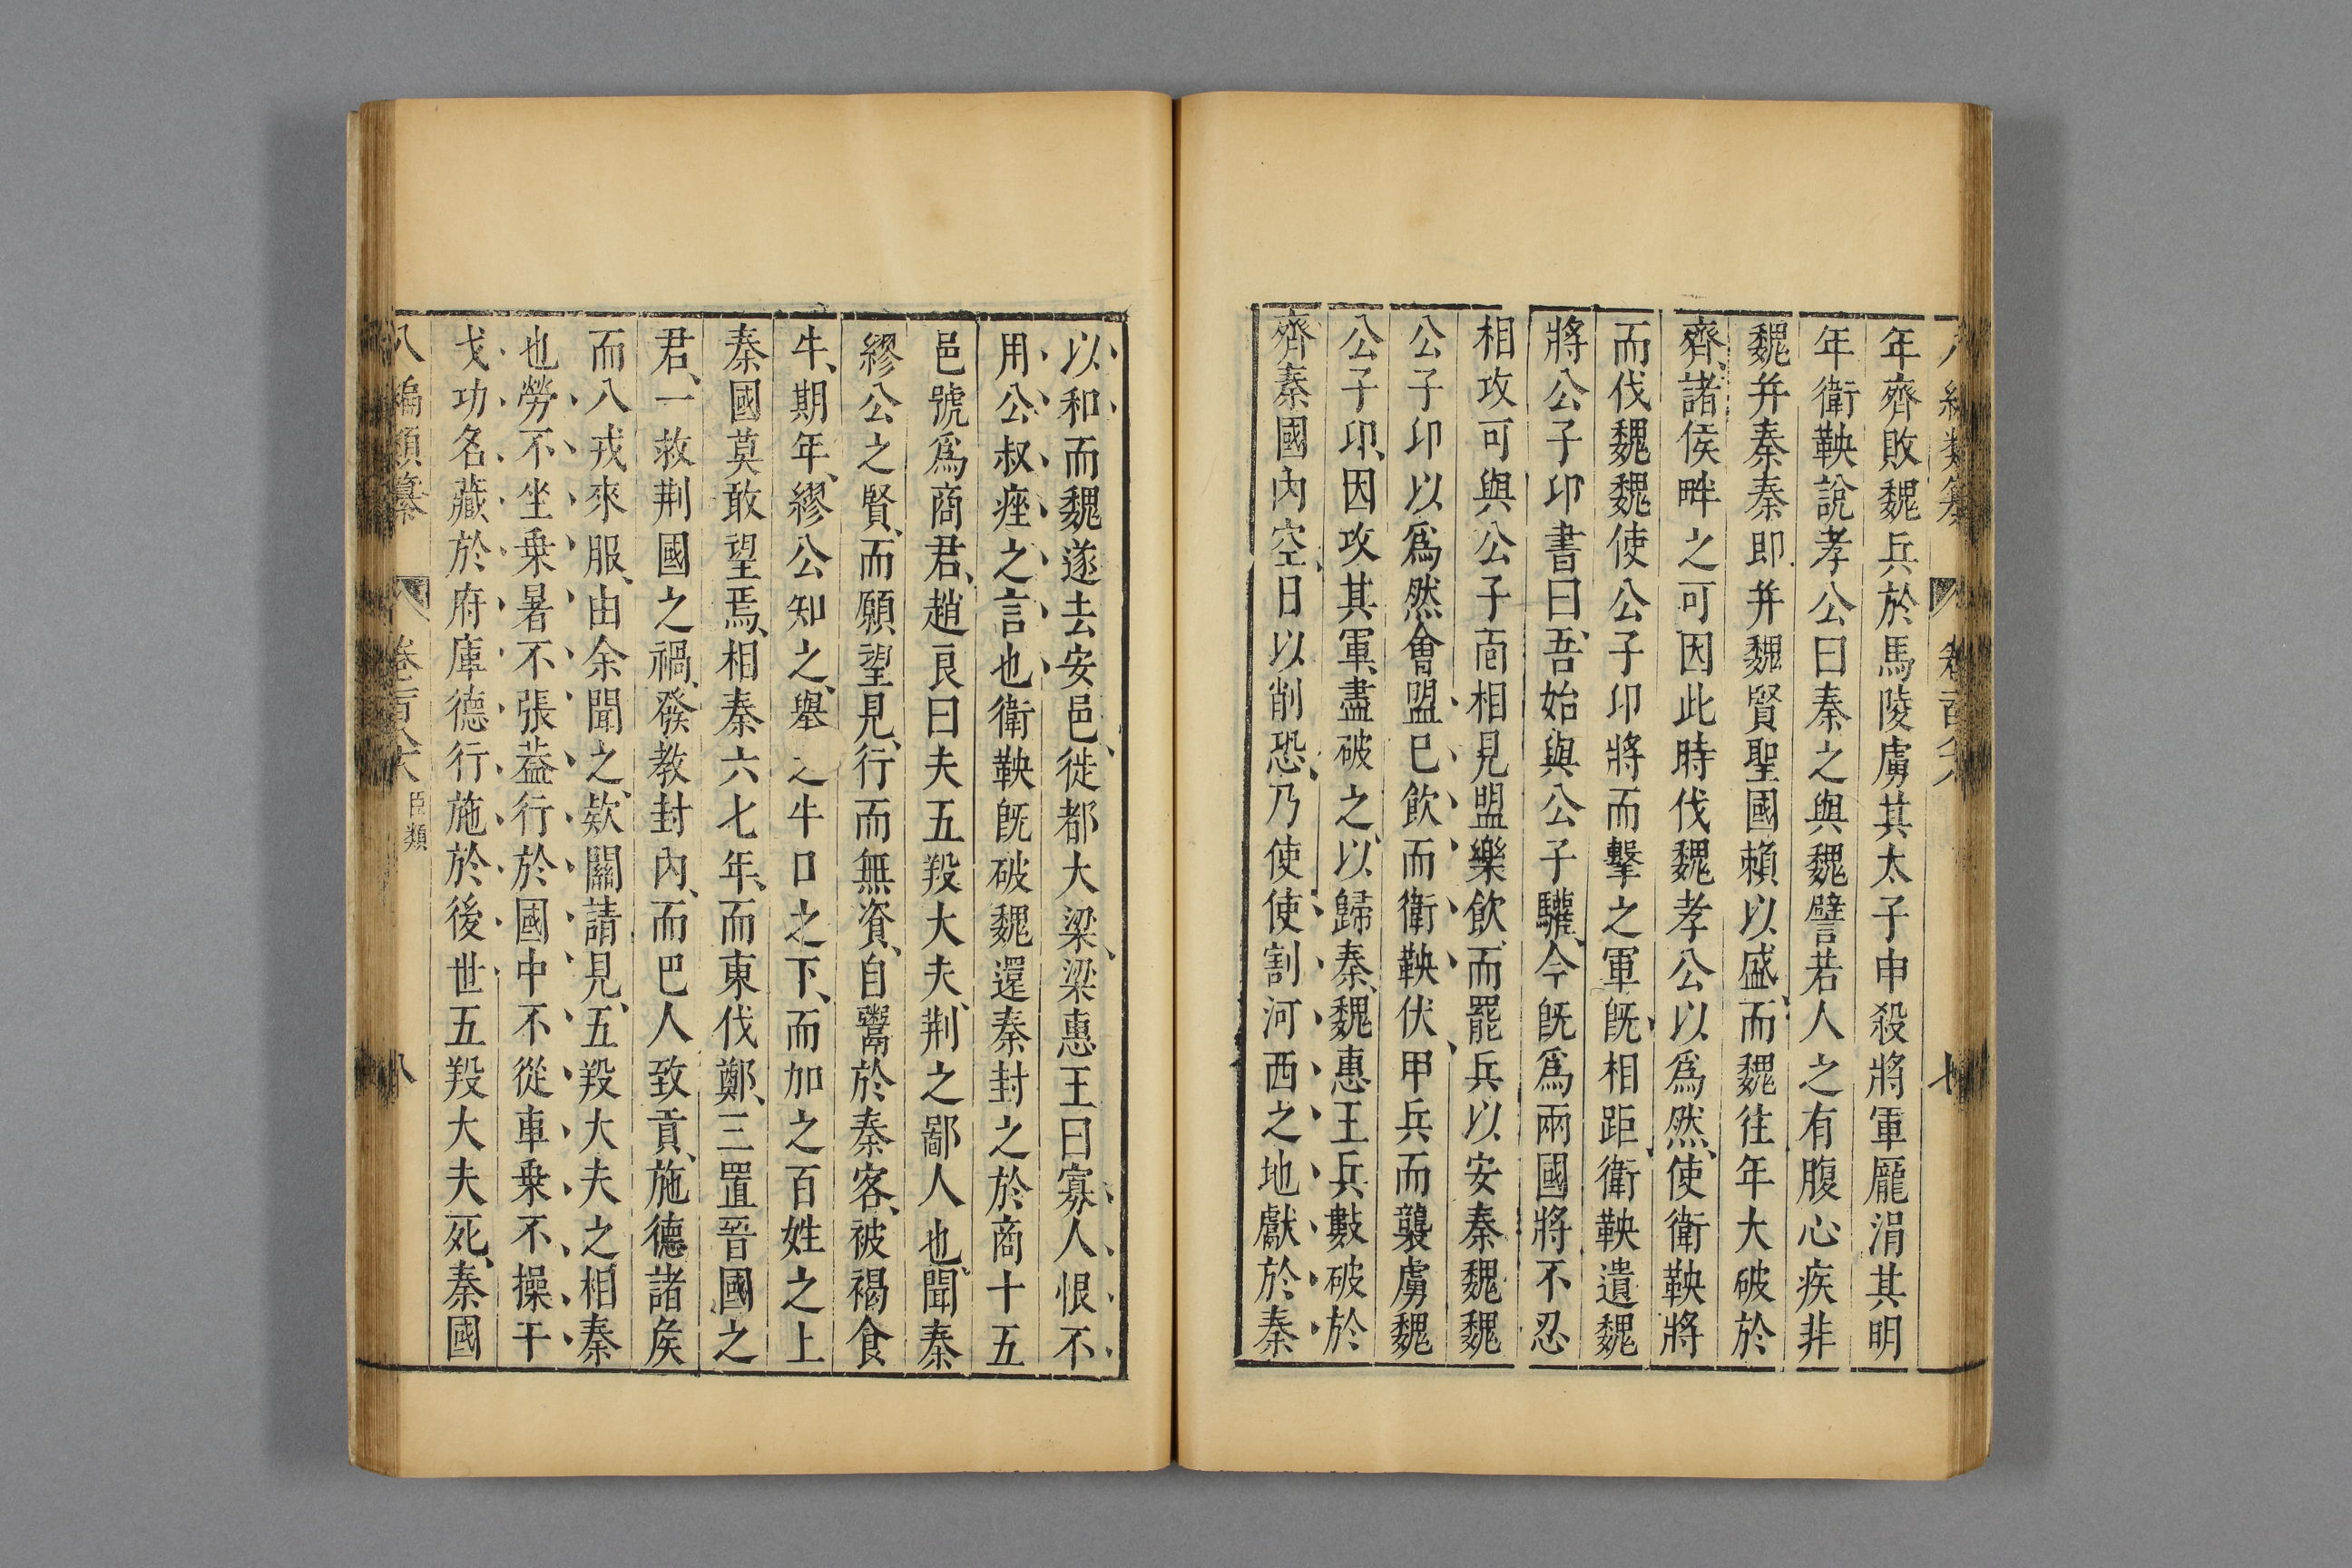 年齊敗魏兵於馬陵虜其太子申殺將軍龐涓其明
年衛鞅說孝公曰秦之與魏譬若人之有腹心疾非
魏并秦秦即并魏賢聖國賴以盛而魏往年大破於
齊諸侯畔之可因此時伐魏孝公以爲然使衛鞅將
而伐魏魏使公子卬將而擊之軍旣相距衛鞅遺魏
將公子卬書曰吾始與公子驩今旣爲兩國將不忍
相攻可與公子面相見盟樂飲而罷兵以安秦魏魏
公子卬以爲然會盟已飲而衛鞅伏甲兵而襲虜魏
公子卬因攻其軍盡破之以歸秦魏惠王兵數破於
齊秦國內空日以削恐乃使使割河西之地獻於秦
以和而魏遂去安邑徙都大梁梁惠王曰寡人恨不
用公叔痤之言也衛鞅旣破魏還秦封之於商十五
邑號爲商君趙良曰夫五羖大夫荆之鄙人也聞秦
繆公之賢而願望見行而無資自鬻於秦客被褐食
牛期年繆公知之舉之牛口之下而加之百姓之上
秦國莫敢望焉相秦六七年而東伐鄭三置晉國之
君一救荆國之禍發教封內而巴人致貢施德諸侯
而八戎來服由余聞之欵關請見五羖大夫之相秦
也勞不坐乗暑不張葢行於國中不從車乗不操干
戈功名藏於府庫德行施於後世五羖大夫死秦國
八編類纂 卷百八六 臣類 八